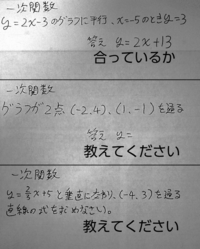 一次関数
y=2x-3のグラフに平行、x=-5のときy=3
答え y=2x+13
合っているか
一次関数
グラフが2点、(-2,4)、(1,-1)を通る
答え y=
教えてください
一次関数
と垂直に交わり、(-4,3)を通る
直線の式をおめなさい。
教えてください